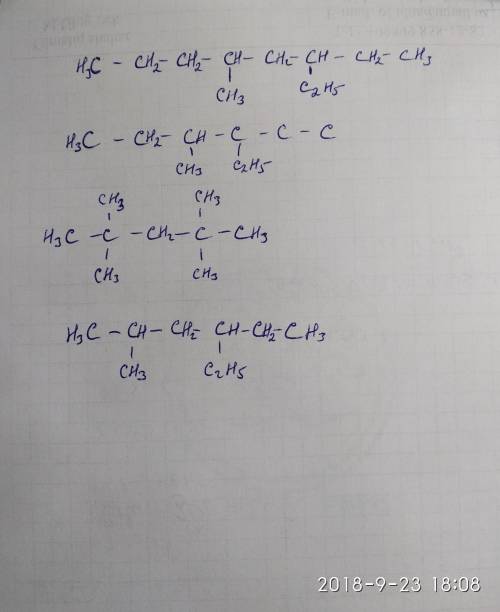 H3C - CH2 - CH2 - CH - CH2 - CH - CH2 - CH3
CH3 C2H5
H3C - CH2 - CH - C - C - C
CH3 C2H5
CH3 CH3
H3C - C - CH2 - C - CH3
CH3 CH3
H3C - CH - CH2 CH - CH2 - CH3
CH3 C2H5
2018-9-23 18:08